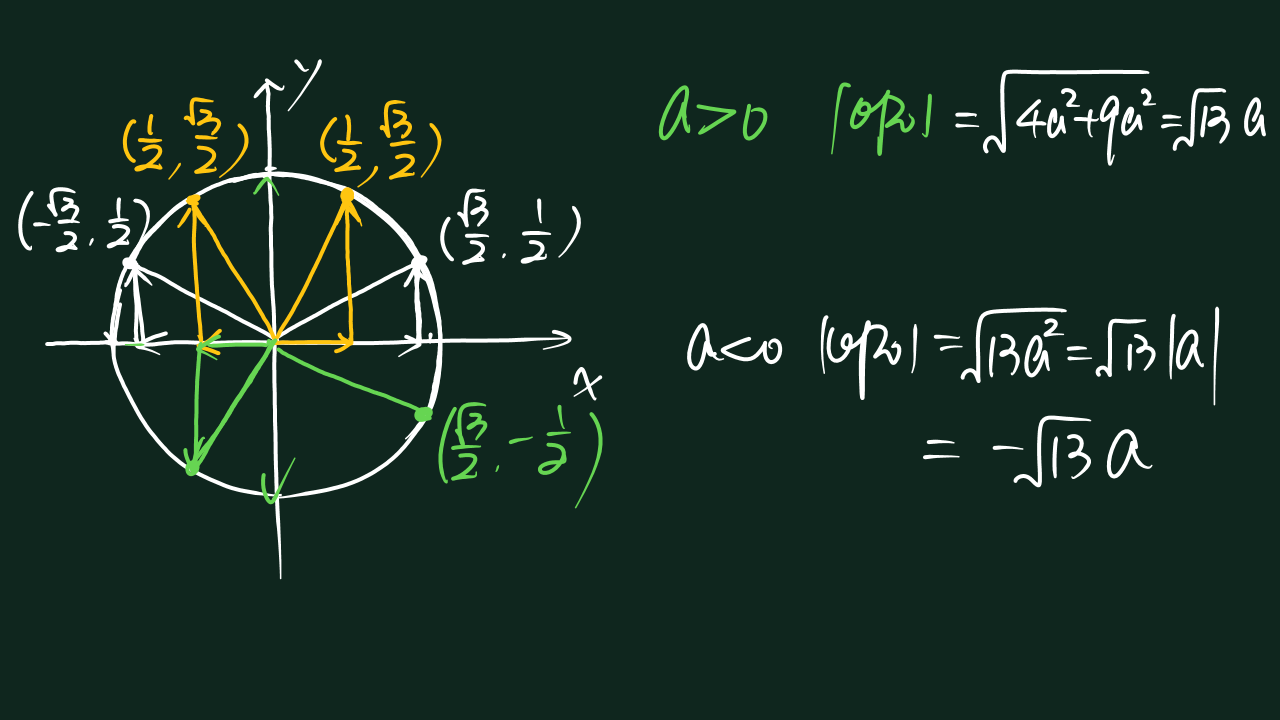 y
(1/2, √3/2) (1/2, √3/2)
(-√3/2, 1/2) (√3/2, 1/2)
x
(√3/2, -1/2)
a>0 |OP₀| = √(4a²+9a²) = √13 a
a<0 |OP₀| = √(13a²) = √13 |a|
= -√13 a